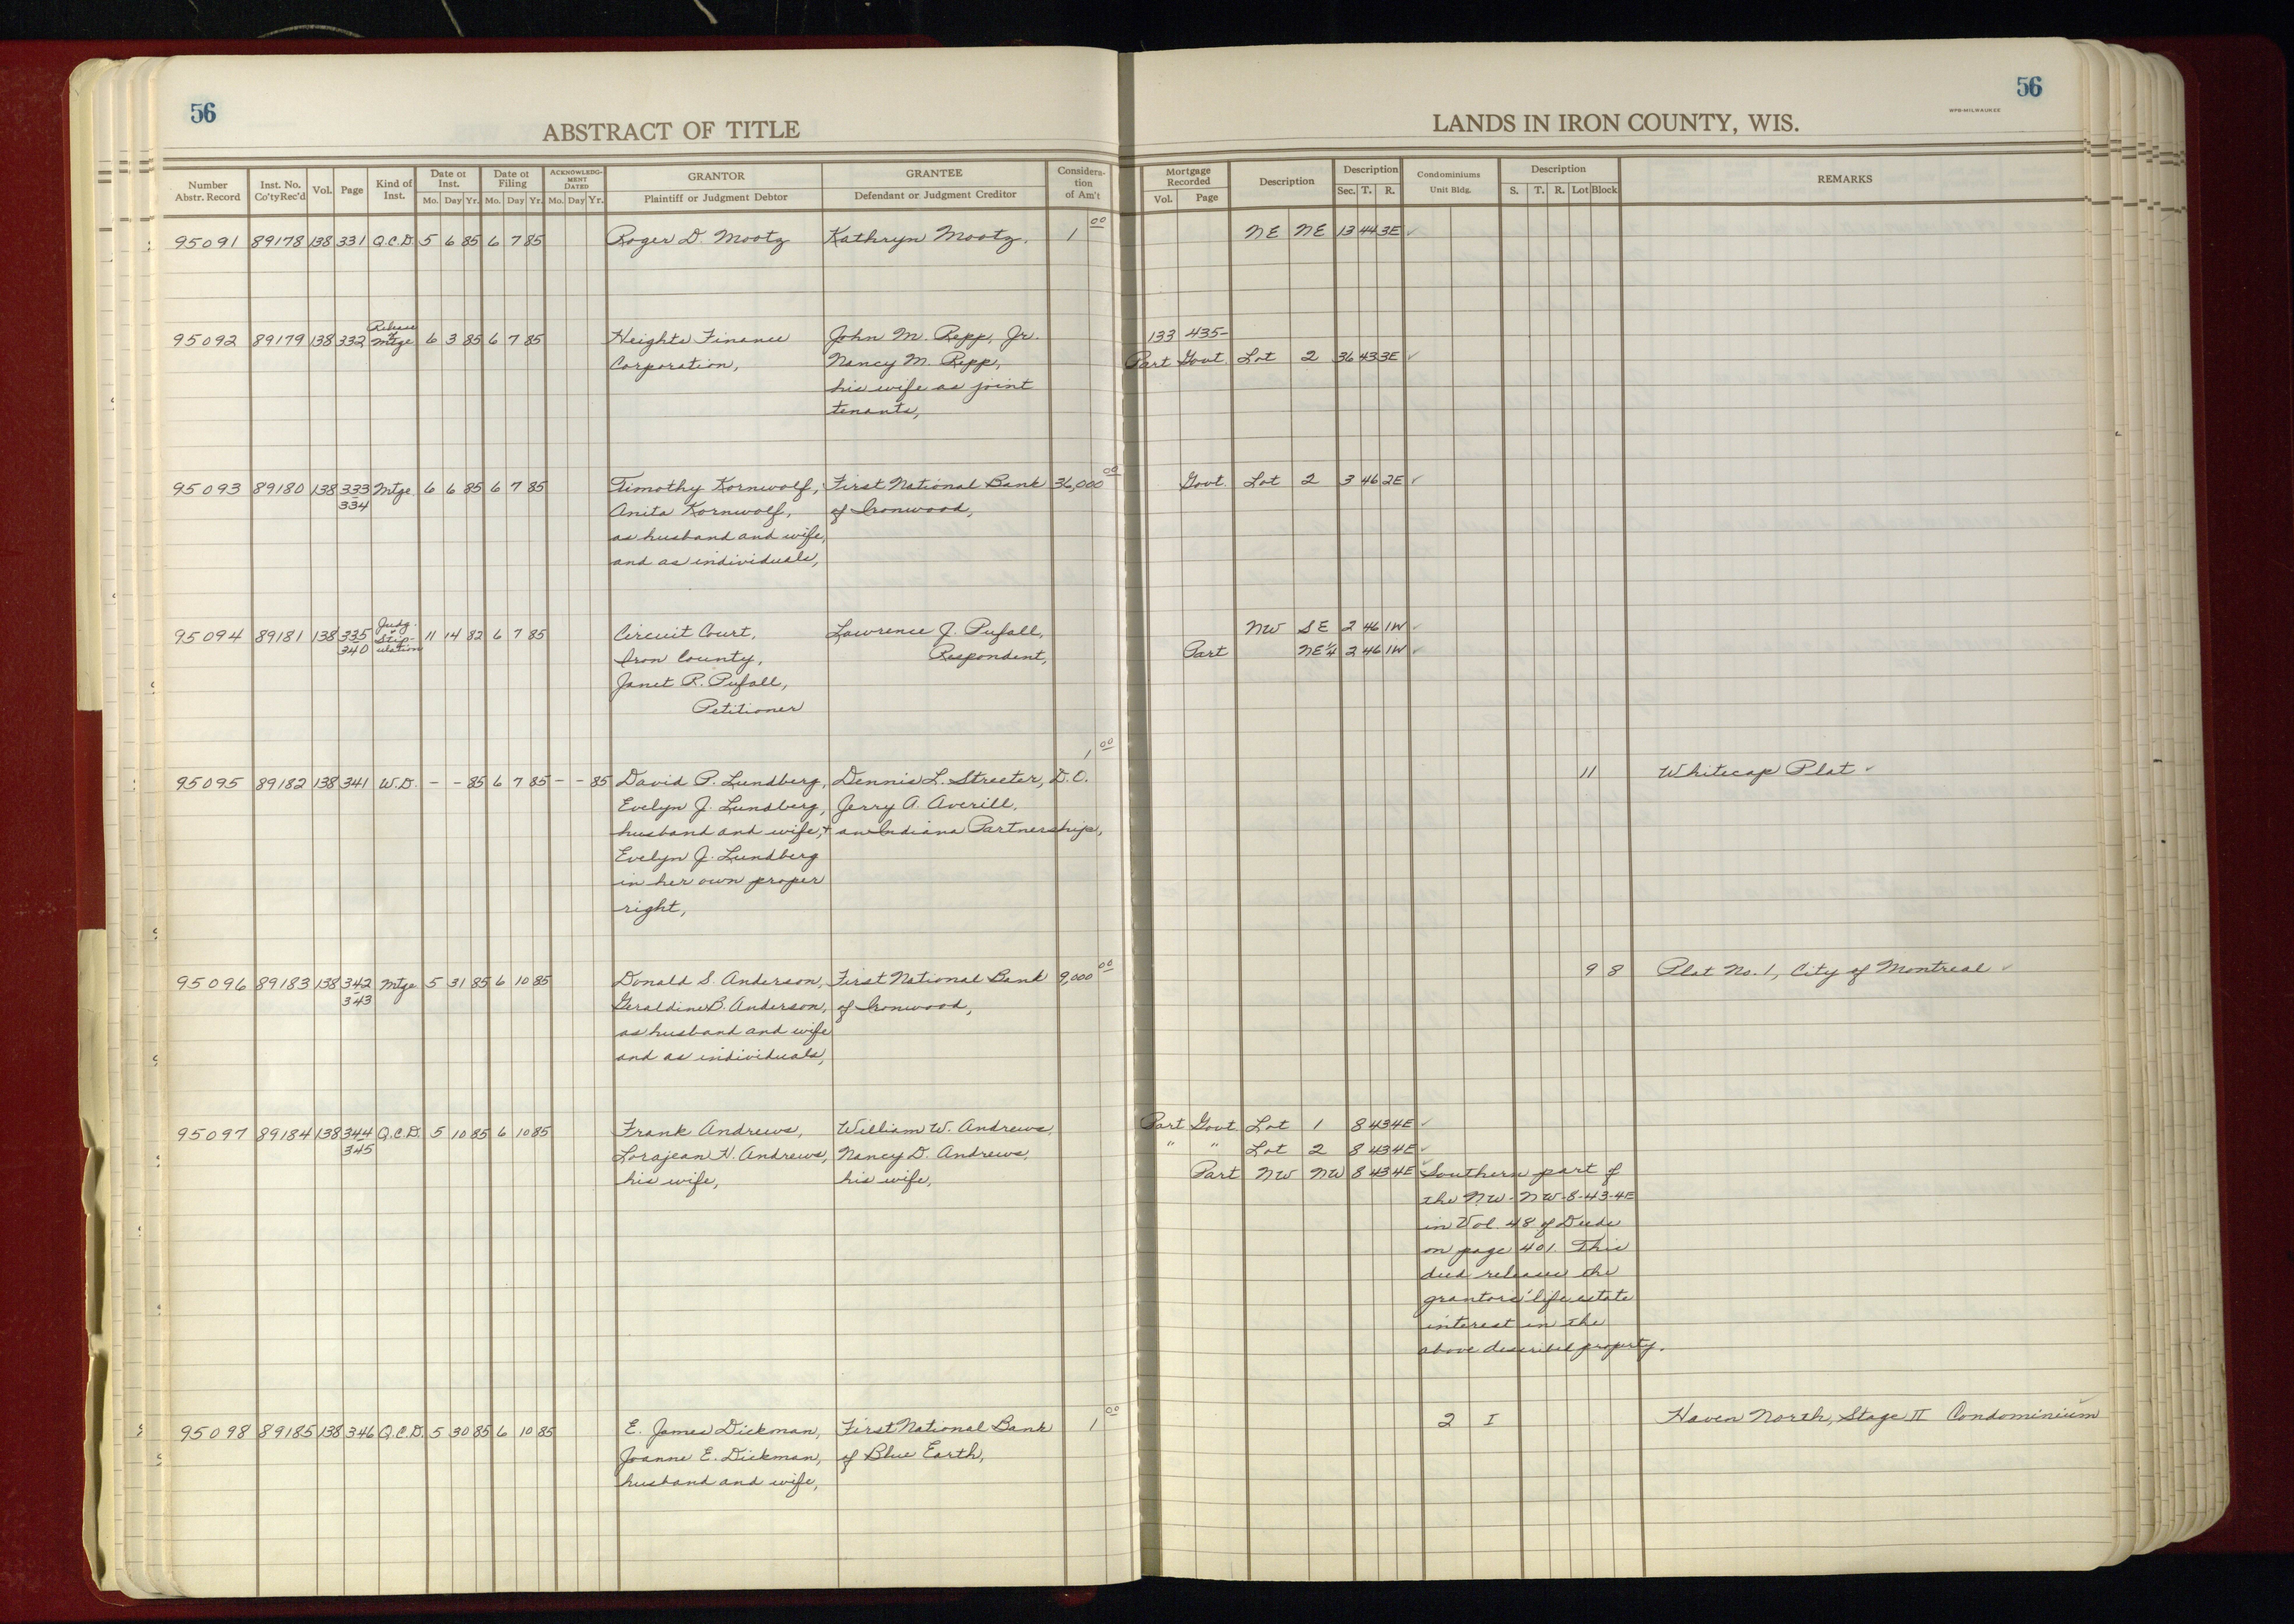 56
56
WPB-MILWAUKEE
ABSTRACT OF TITLE
LANDS IN IRON COUNTY, WIS.
Number Abstr. Record | Inst. No. Co'ty Rec'd | Vol. | Page | Kind of Inst. | Date of Inst. Mo. Day Yr. | Date of Filing Mo. Day Yr. | ACKNOWLEDGMENT DATED Mo. Day Yr. | GRANTOR Plaintiff or Judgment Debtor | GRANTEE Defendant or Judgment Creditor | Consideration of Am't | Mortgage Recorded Vol. Page | Description | Description Sec. T. R. | Condominiums Unit Bldg. | Description S. T. R. Lot Block | REMARKS
95091 89178 138 331 Q.C.D. 5 6 85 6 7 85 Roger D. Mootz Kathryn Mootz, 1 00 NE NE 13 44 3E ✓
95092 89179 138 332 Release of Mtge 6 3 85 6 7 85 Heights Finance John M. Repp, Jr. 133 435-
Corporation, Nancy M. Repp, Part Govt. Lot 2 36 43 3E ✓
his wife as joint
tenants,
95093 89180 138 333 Mtge 6 6 85 6 7 85 Timothy Kornwolf, First National Bank 36,000 00 Govt. Lot 2 3 46 2E ✓
334 Anita Kornwolf, of Ironwood,
as husband and wife,
and as individuals,
95094 89181 138 335 Judg. + Stipulation 11 14 82 6 7 85 Circuit Court, Lawrence J. Pufall, NW SE 2 46 1W ✓
340 Iron County, Respondent, Part NE¼ 2 46 1W ✓
Janet R. Pufall,
Petitioner
95095 89182 138 341 W.D. - - 85 6 7 85 - - 85 David P. Lundberg, Dennis L. Streeter, 1 00 D.C. 11 Whitecap Plat ✓
Evelyn J. Lundberg, Jerry A. Averill,
husband and wife, + an Indiana Partnership,
Evelyn J. Lundberg
in her own proper
right,
95096 89183 138 342 Mtge 5 31 85 6 10 85 Donald S. Anderson, First National Bank 9,000 00 9 8 Plat No. 1, City of Montreal ✓
343 Geraldine B. Anderson, of Ironwood,
as husband and wife
and as individuals,
95097 89184 138 344 Q.C.D. 5 10 85 6 10 85 Frank Andrews, William W. Andrews, Part Govt. Lot 1 8 43 4E ✓
345 Lorajean H. Andrews, Nancy D. Andrews, " " Lot 2 8 43 4E ✓
his wife, his wife, Part NW NW 8 43 4E ✓ Southern part of
the NW-NW-8-43-4E
in Vol. 48 of Deeds
on page 401. This
deed releases the
grantors' life estate
interest in the
above described property.
95098 89185 138 346 Q.C.D. 5 30 85 6 10 85 E. James Dickman, First National Bank 1 00 2 I Haven North, Stage II Condominium ✓
Joanne E. Dickman, of Blue Earth,
husband and wife,